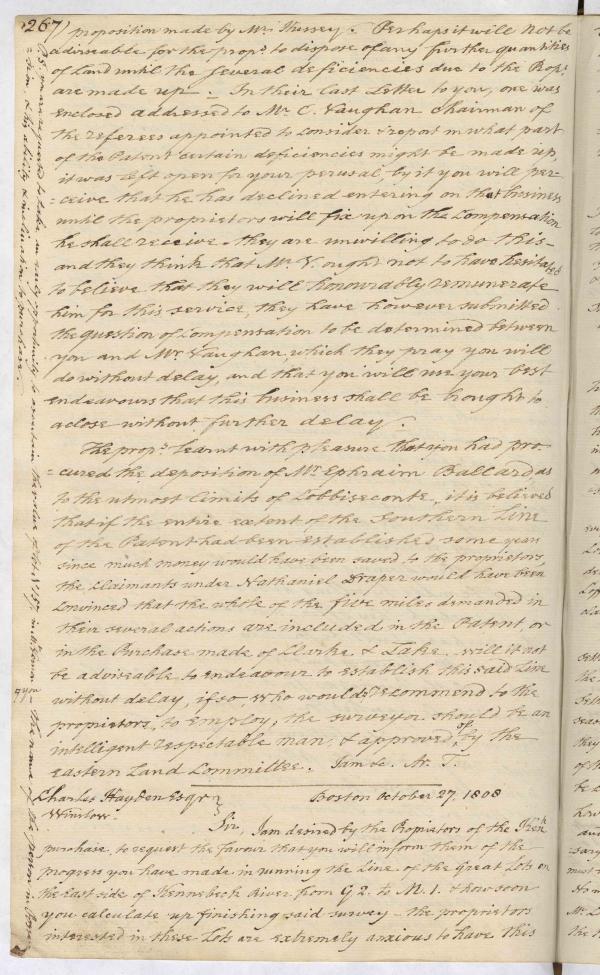 267)
proposition made by Mr. Hussey. Perhaps it will not be
adviseable for the props. to dispose of any further quantities
of Land until the several deficiencies due to the Props.
are made up. In their last Letter to you, one was
enclosed addressed to Mr. C. Vaughan Chairman of
the referees appointed to consider & report in what part
of the Patent certain deficiencies might be made up,
it was left open for your perusal, by it you will per-
=ceive that he has declined entering on that business
until the proprietors will fix upon the Compensation
he shall receive they are unwilling to do this-
and they think that Mr. V. ought not to have hesitated
to believe that they will honourably remunerate
him for this service, they have however submitted
the question of compensation to be determined between
you and Mr. Vaughan, which they pray you will
do without delay, and that you will use your best
endeavours that this business shall be brought to
a close without further delay.
The props. learnt with pleasure that you had pro-
=cured the deposition of Mr. Ephraim Ballard as
to the utmost limits of Cobbiseconte, it is believed
that if the entire extent of the Southern Line
of the Patent had been established some years
since much money would have been saved to the proprietors,
the Claimants under Nathaniel Draper would have been
convinced that the whole of the five miles demanded in
their several actions are included in the Patent, or
in the Purchase made of Clarke & Lake. will it not
be adviseable to endeavour to establish this said Line
without delay, if so, who would you recommend to the
proprietors, to employ, the surveyor should be an
intelligent respectable man, & approved of by the
Eastern Land Committee. I am &c. Ar. T.
P.S. you are requested to take an early opportunity to ascertain the value of Lot No. 157 in the name of the person in possession & his ability & inclination to purchase.
Charles Hayden Esqr.
Winslow.
Boston October 27. 1808
Sir, I am desired by the Propietors of the Kenk.
purchase, to request the favour that you will inform them of the
progress you have made in running the Line of the Great Lots on
the East side of Kennebeck River from G 2. to M. 1. & how soon
you calculate upon finishing said survey - the proprietors
interested in these Lots are extremely anxious to have this